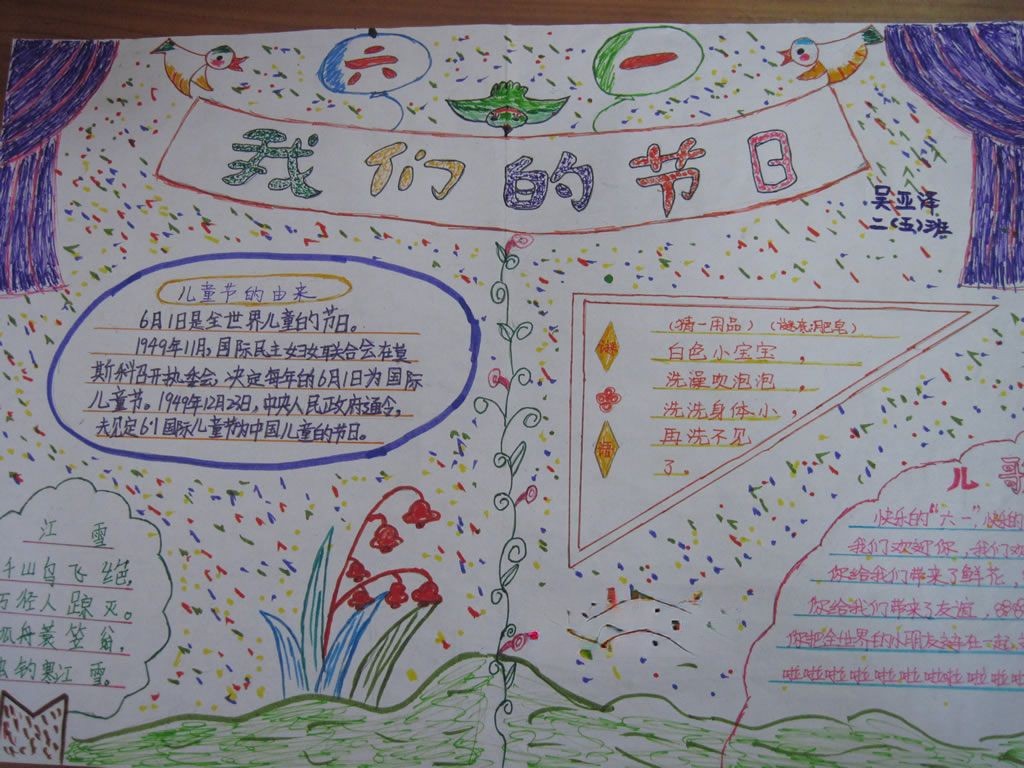 六 一
我们的节日
吴亚泽
二(五)班
儿童节的由来
6月1日是全世界儿童的节日。
1949年11月,国际民主妇女联合会在莫
斯科召开执委会,决定每年的6月1日为国际
儿童节。1949年12月23日,中央人民政府通令,
夫见定6·1国际儿童节为中国儿童的节日。
谜
语
(猜一用品)(谜底:肥皂)
白色小宝宝,
洗澡吹泡泡,
洗洗身体小,
再洗不见
了。
江 雪
千山鸟飞绝,
万径人踪灭。
孤舟蓑笠翁,
独钓寒江雪。
儿 歌
快乐的“六一”,快乐的
我们欢迎你,我们欢
你给我们带来了鲜花,
你给我们带来了友谊,
你把全世界的小朋友牵在一起,
啦啦啦啦啦啦啦啦啦啦